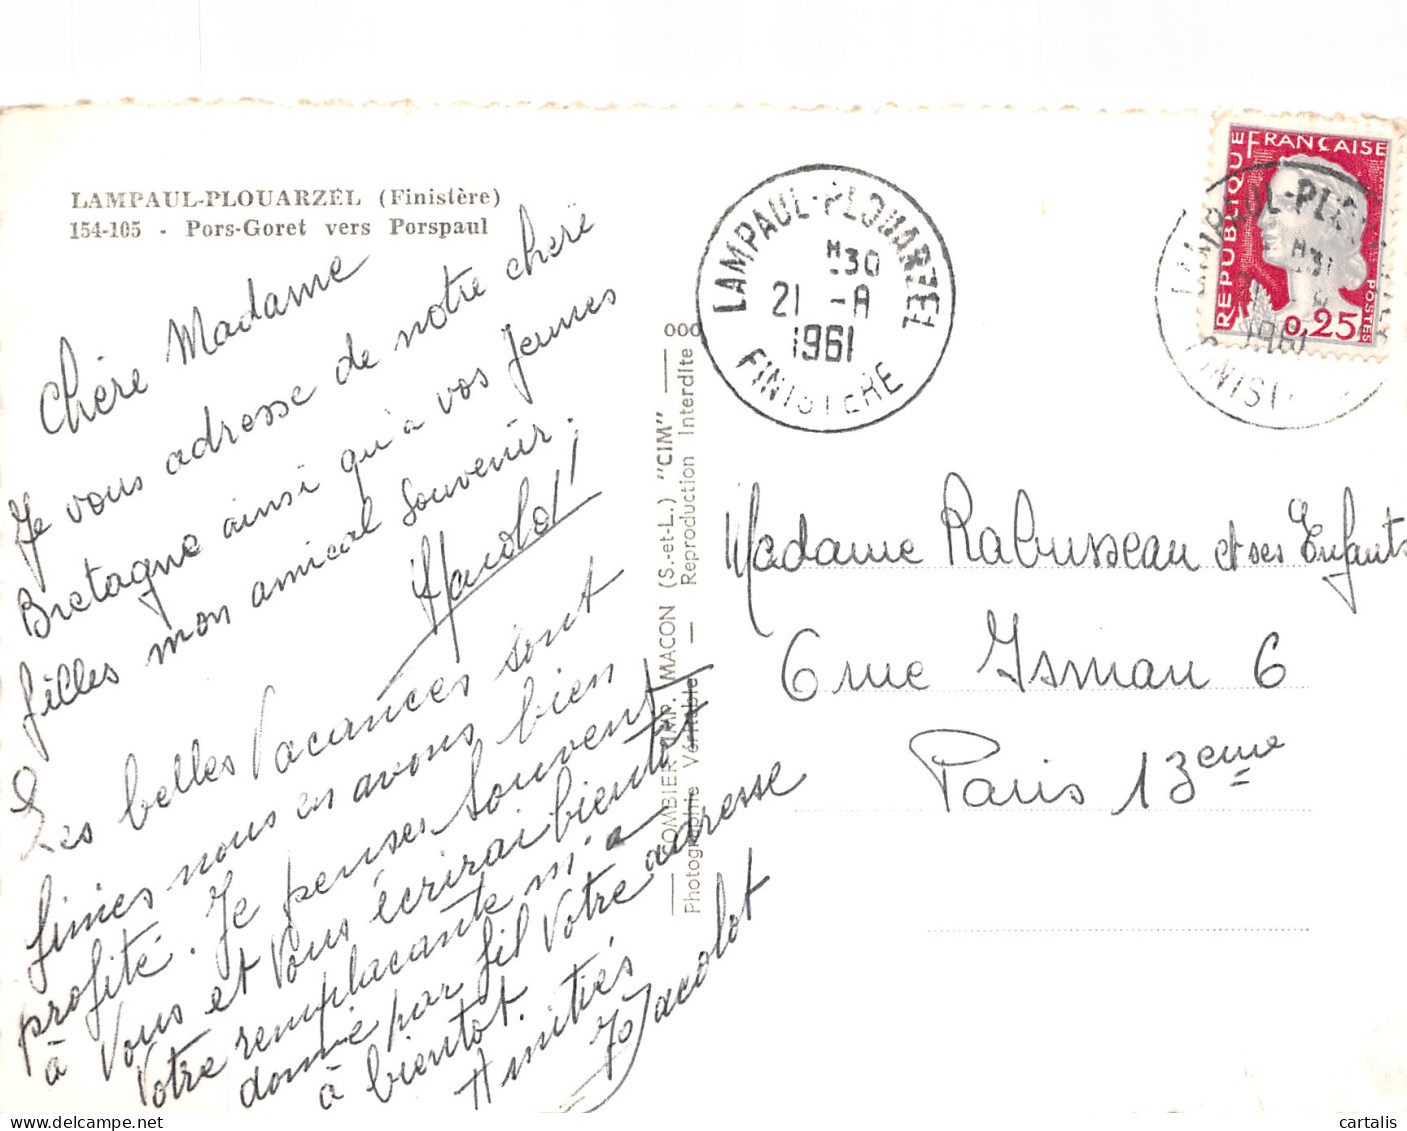 LAMPAUL-PLOUARZEL (Finistère)
154-105 - Pors-Goret vers Porspaul
Chère Madame
Je vous adresse de notre chère
Bretagne ainsi qu'à vos jeunes
filles mon amical souvenir.
Les belles Vacances sont
finies nous en avons bien
profité. Je penses souvent
à Vous et Vous écrirai bientôt
Votre remplaçante m'a
donné par fil Votre adresse
à bientot.
Amitiés
Jacolot
COMBIER IMP. MACON (S.-et-L.) "CIM"
Photographie Véritable — Reproduction Interdite
LAMPAUL-PLOUARZEL
H30
21 -A
1961
FINISTERE
REPUBLIQUE FRANÇAISE
POSTES
0,25
LAMPAUL-PLO
1961
FINIS
Madame Rabusseau et ses Enfants
6 rue Isman 6
Paris 13eme
cartalis